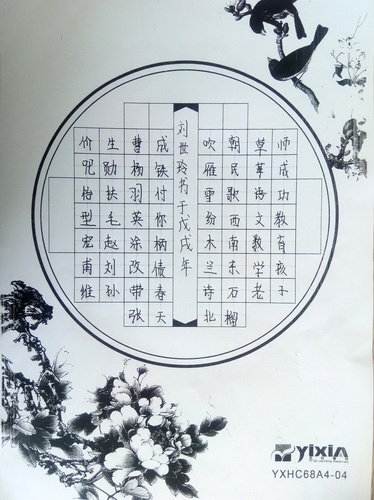 师成功教育孩子
草革语文数学老
朝民歌西南东石榴
吹雁雪纷木兰诗北
刘世玲书于戊戌年
成铁付你柄债春天
曹杨羽英涂改带张
生勋扶毛赵刘孙
价咒型宏甫维
yixin
YXHC68A4-04